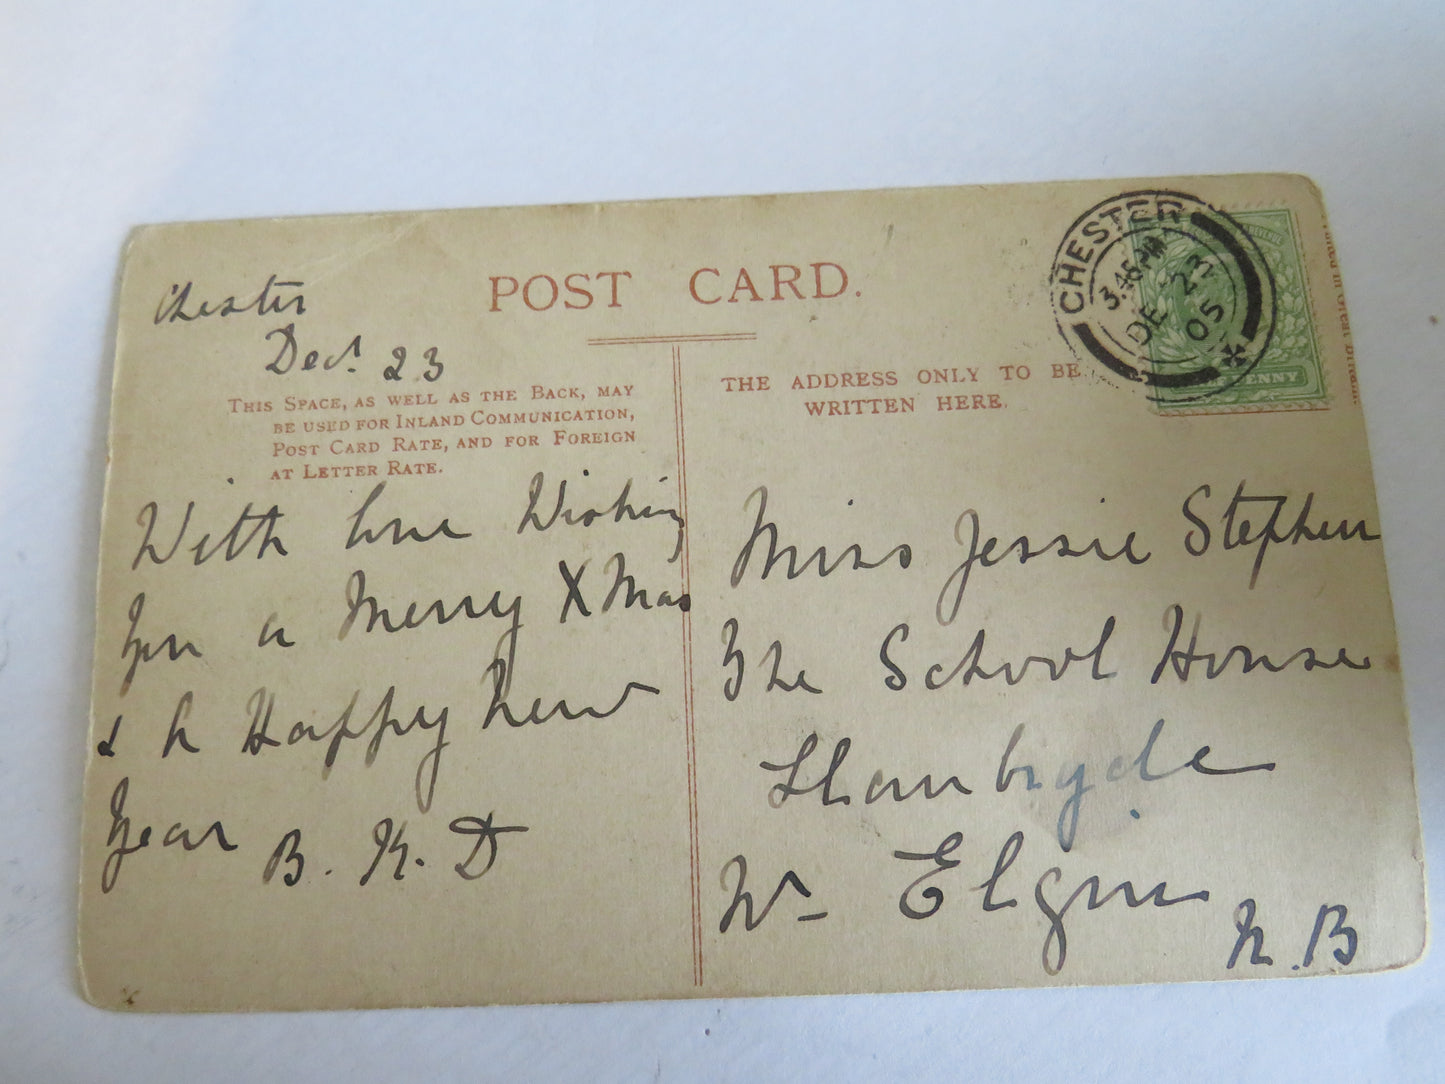 POST CARD.
Chester
Decr. 23
THIS SPACE, AS WELL AS THE BACK, MAY
BE USED FOR INLAND COMMUNICATION,
POST CARD RATE, AND FOR FOREIGN
AT LETTER RATE.
With love Wishing
you a Merry XMas
& a Happy New
Year
B. K. D
THE ADDRESS ONLY TO BE
WRITTEN HERE.
CHESTER
3.45 PM
DE 23
05
PENNY
Printed in Great Britain
Miss Jessie Stephen
The School House
Llanbryde
Nr Elgin
N. B